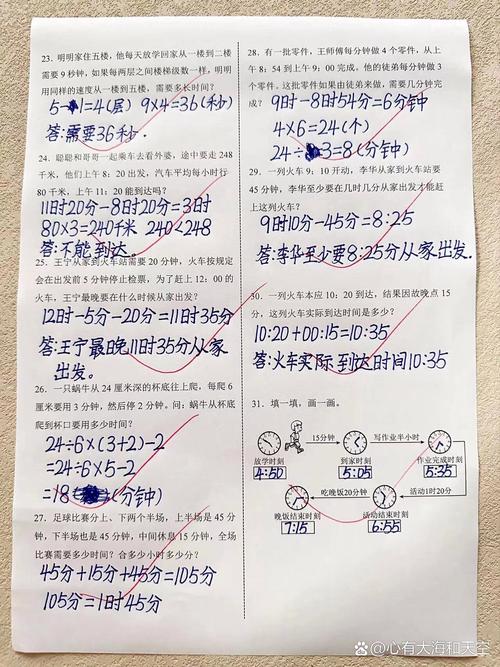 23. 明明家住五楼，他每天放学回家从一楼到二楼
需要 9 秒钟，如果每两层之间楼梯级数一样，明明
用同样的速度从一楼到五楼，需要多长时间？
5-1=4(层) 9×4=36(秒)
答:需要36秒.
24. 聪聪和哥哥一起乘车去看外婆，途中要走 248
千米，他们上午 8：20 出发，汽车平均每小时行
80 千米，上午 11：20 能到达吗？
11时20分-8时20分=3时
80×3=240千米 240<248
答:不能到达.
25. 王宁从家到火车站需要 20 分钟，火车按规定
会在出发前 5 分钟停止检票，为了赶上 12：00 的
火车，王宁最晚要在什么时候从家出发？
12时-5分-20分=11时35分
答:王宁最晚11时35分从家
出发.
26. 一只蜗牛从 24 厘米深的杯底往上爬，每爬 6
厘米要用 3 分钟，然后停 2 分钟。问：蜗牛从杯底
爬到杯口要用多少时间？
24÷6×(3+2)-2
=24÷6×5-2
=18(分钟)
27. 足球比赛分上、下两个半场，上半场是 45 分
钟，下半场也是 45 分钟，中间休息 15 分钟，全场
比赛需要多少时间？合多少小时多少分？
45分+15分+45分=105分
105分=1时45分
28. 有一批零件，王师傅每分钟做 4 个零件，从上
午 8：54 到上午 9：00 完成。他的徒弟每分钟做
3 个零件。这批零件如果由徒弟来做，需要几分钟完
成？
9时-8时54分=6分钟
4×6=24(个)
24÷3=8(分钟)
29. 一列火车 9：10 开动，李华从家到火车站要
45 分钟，李华至少要在几时几分从家出发才能赶
上这列火车？
9时10分-45分=8:25
答:李华至少要8:25分从家出发.
30. 一列火车本应 10：20 到达，结果因故晚点 15
分，这列火车实际到达时间是多少？
10:20+00:15=10:35
答:火车实际到达时间10:35
31. 填一填，画一画。
15分钟 写作业半小时
放学时刻 到家时刻 作业完成时刻
4:50 5:05 5:35
吃晚饭20分钟 活动1时20分
晚饭结束时刻 活动结束时刻
7:15 6:55
@心有大海和天空